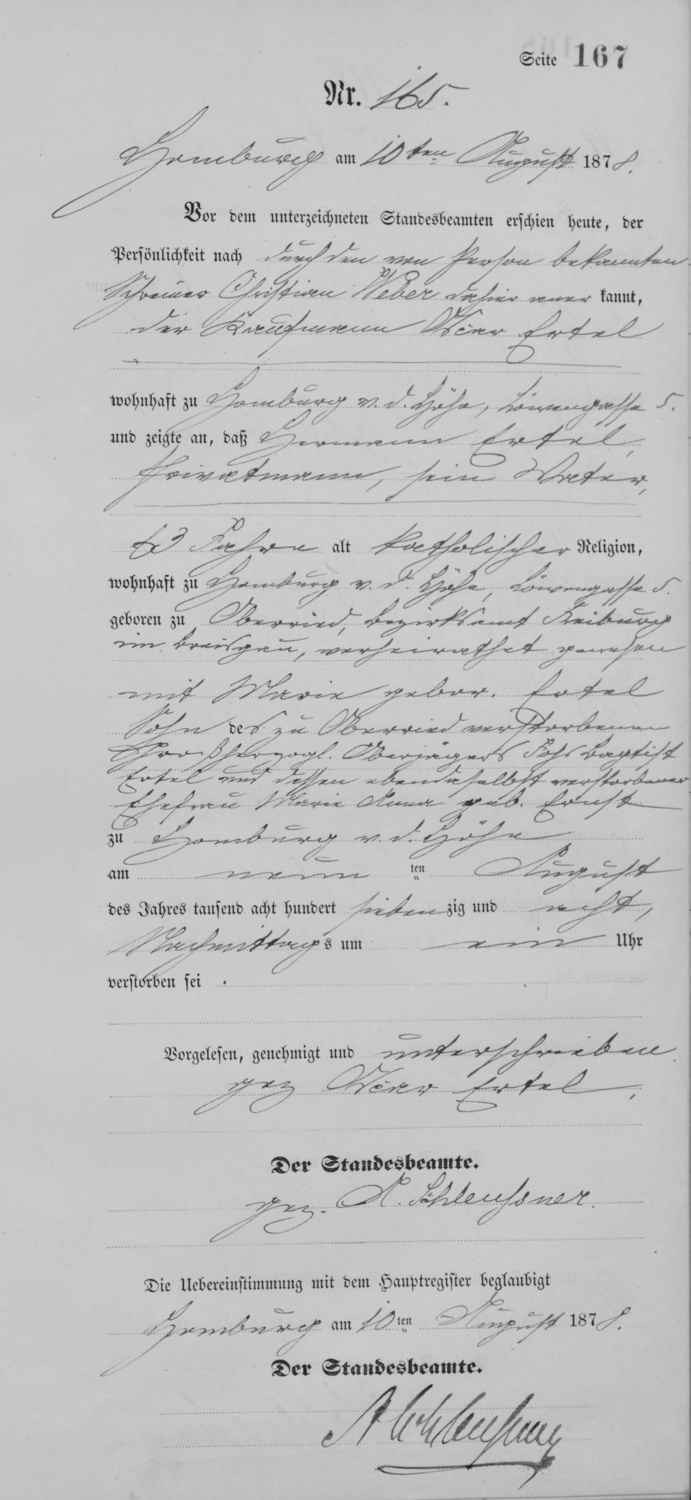 Seite 167
Nr. 165.
Homburg am 10ten August 1878.
Vor dem unterzeichneten Standesbeamten erschien heute, der
Persönlichkeit nach durch den von Person bekannten
Schreiner Christian Weber dahier aner kannt,
der Kaufmann Oscar Ertel
wohnhaft zu Homburg v. d. Höhe, Löwengasse 5.
und zeigte an, daß Hermann Ertel,
Privatmann, sein Vater,
63 Jahre alt katholischer Religion,
wohnhaft zu Homburg v. d. Höhe, Löwengasse 5.
geboren zu Oberried, Bezirksamt Freiburg
im Breisgau, verheirathet gewesen
mit Marie gebor. Ertel
Sohn des zu Oberried verstorbenen
Großherzogl. Oberjägers Johs Baptist
Ertel und dessen ebendaselbst verstorbener
Ehefrau Marie Anna geb. Ernst
zu Homburg v. d. Höhe
am neun ten August
des Jahres tausend acht hundert siebenzig und acht,
Nachmittags um ein Uhr
verstorben sei.
Vorgelesen, genehmigt und unterschrieben.
gez Oscar Ertel.
Der Standesbeamte.
gez. A. Schleussner.
Die Uebereinstimmung mit dem Hauptregister beglaubigt
Homburg am 10ten August 1878.
Der Standesbeamte.
A Schleussner